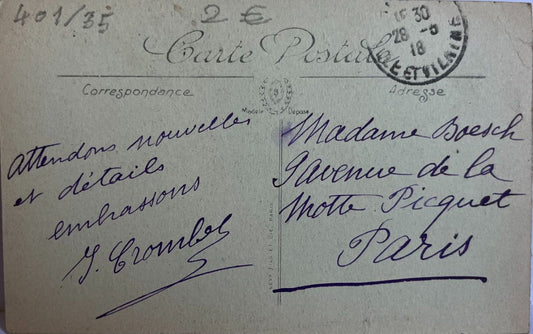 401/35
2 €
15 30
28 -5
18
ILLE ET VILAINE
Carte Postale
Correspondance
Adresse
Modèle Déposé
Attendons nouvelles
et détails
embrassons
Madame Boesch
9 avenue de la
Motte Picquet
Paris